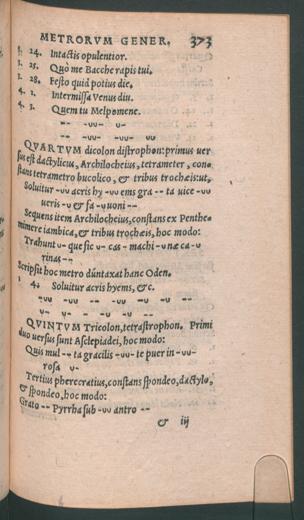 METRORVM GENER. 373
3. 24. Intactis opulentior.
3. 25. Quò me Bacche rapis tui.
3. 28. Festo quid potius die.
4. 1. Intermissa Venus diu.
4. 3. Quem tu Melpomene.
-- -uu- u-
-- -uu- -uu- uu
QVARTVM dicolon distrophon: primus uer
sus est dactylicus, Archilocheius, tetrameter, con-
stans tetrametro bucolico, & tribus trochæis: ut,
Soluitur -uu acris hy -uu ems gra -- ta uice -uu
ueris -u & fa -u uoni --
Sequens item Archilocheius, constans ex Penthe-
mimere iambica, & tribus trochæis, hoc modo:
Trahunt u- que sic u- cas- machi -u næ ca -u
rinas --
Scripsit hoc metro dũntaxat hanc Oden.
1 4. Soluitur acris hyems, &c.
-uu -uu -- -uu -u -u --
u- u- - -u -u --
QVINTVM Tricolon, tetrastrophon. Primi
duo uersus sunt Asclepiadei, hoc modo:
Quis mul -- ta gracilis -uu- te puer in -uu-
rosa u-
Tertius pherecratius, constans spondeo, dactylo,
& spondeo, hoc modo:
Grato -- Pyrrha sub -uu antro --
& iij